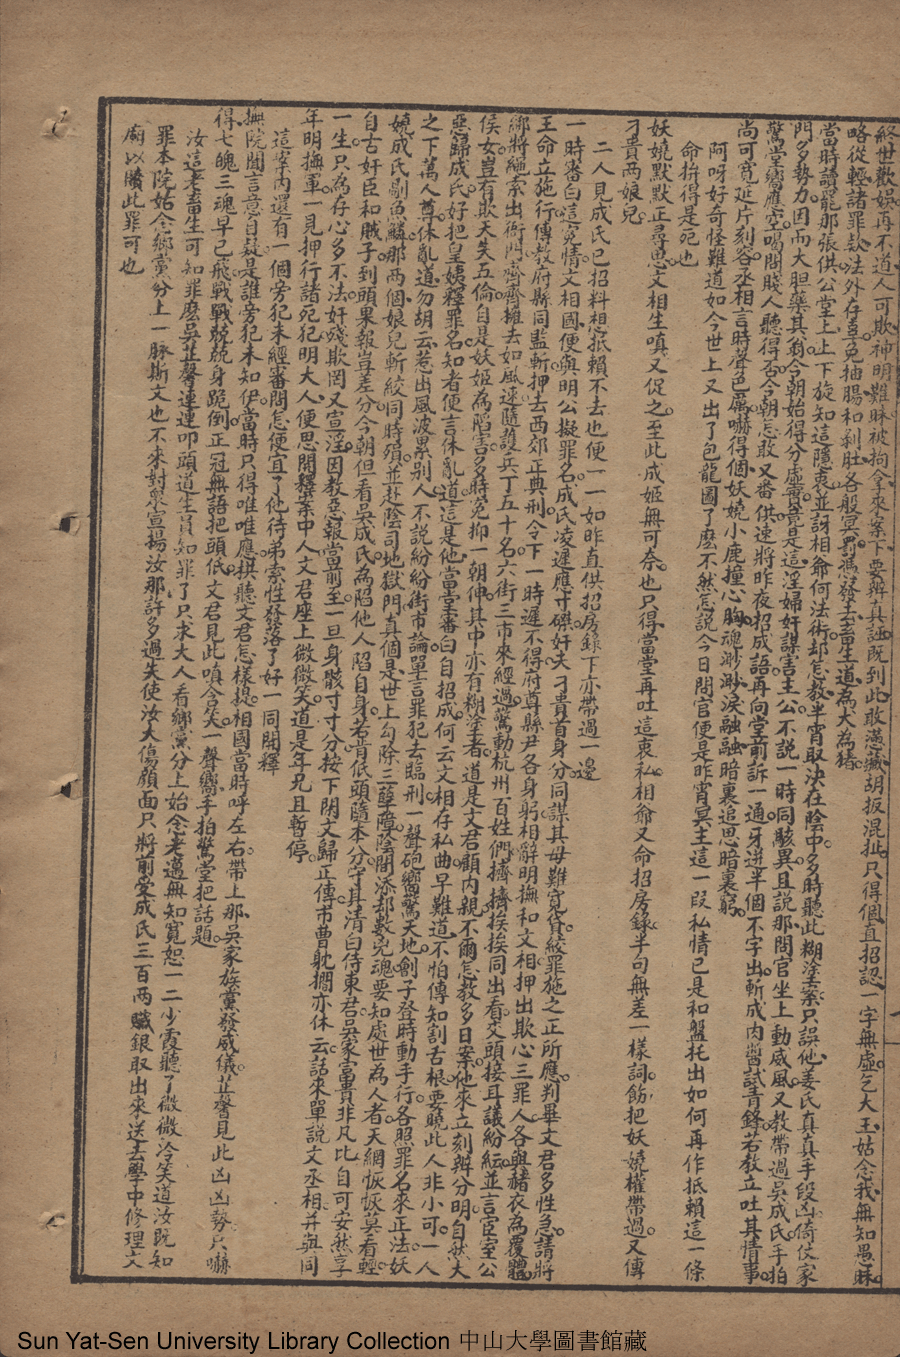 終世歡娛再不道人可欺神明難昧被拘拿來案下要辨真誣既到此敢瀌藏胡扳混扯只得個直招認一字無虛乞大王姑念我無知愚昧
略從輕諸罪款法外存喜免抽腸和刹肚各般冥罰馮發去畜生道為犬為猪
當時請罷那張供公堂上上下旋知這隱衷並訝相爺何法術却怎教半宵取決在陰中多時聽此糊塗案只誤他姜氏真真手段凶倚仗家
門多勢力因而大胆藥其翁今朝始得分虛實竟是這淫婦奸謀害主公不說一時同駭異且説那問官坐上動威風又教帶過吳成氏手拍
驚堂嚮應空喝問賤人聽得否今朝怎敢又番供速將昨夜招成語再向堂前訴一通牙迸半個不字出斬成肉醬試青鋒若教立吐其情事
尚可寬延片刻容丞相言時聲色厲嚇得個妖嬈小鹿撞心胸魂渺渺淚融融暗裏追思暗裏窮
阿呀好奇怪難道如今世上又出了包龍圖了麽不然怎說今日問官便是昨宵冥主這一段私情已是和盤托出如何再作抵賴這一條
命拚得是死也
妖嬈默默正尋思文相生嗔又促之至此成姬無可奈也只得當堂再吐這衷私相爺又命招房錄半句無差一樣詞飭把妖嬈權帶過又傳
刁貴兩娘兒
二人見成氏已招料想抵賴不去也便一一如昨直供招房錄下亦帶過一邊
一時審白這冤情文相國便與明公擬罪名成氏凌遲應寸磔奸夫刁貴首身分同謀其母難寬貸絞罪施之正所應判畢文君多性急請將
王命立施行傳教府縣同監斬押去西郊正典刑令下一時遲不得府尊縣尹各身躬相辭明撫和文相押出欺心三罪人各與赭衣為覆體
綁將繩索出衙門齊齊擁去如風速隨護兵丁五十名六街三市來經過驚動杭州百姓們擠擠挨挨同出看交頭接耳議紛紜並言宦室公
侯女豈有欺夫失五倫自是妖姬為陷害多時冤抑一朝伸其中亦有糊塗者道是文君顧内親不爾怎教多日案他來立刻辨分明自然大
惡歸成氏好把皇姨釋罪名知者便言休亂道這是他當堂審白自招成何云文相存私曲早難道不怕傳知割舌根要曉此人非小可一人
之下萬人尊休亂道勿胡云惹出風波累别人不說紛紛街市論單言罪犯去臨刑一聲砲嚮驚天地劊子登時動手行各照罪名來正法妖
嬈成氏剮魚鱗那兩個娘兒斬絞同時殞並赴陰司地獄門真個是世上勾除三孽障陰間添却數冤魂要知處世為人者天網恢恢莫看輕
自古奸臣和賊子到頭果報豈差分今朝但看吳成氏為陷他人陷自身若肯低頭隨本分守其清白侍東君吳家富貴非凡比自可安然享
一生只為存心多不法奸殘欺罔又宣淫因教惡報當前至一旦身骸寸寸分按下閒文歸正傳市曹躭擱亦休云話來單説文丞相并與同
年明撫軍一見押行諸死犯明大人便思開釋案中人文君座上微微笑道是年兄且暫停
這案内還有一個旁犯未經審問怎便宜了他待弟索性發落了好一同開釋
撫院聞言意自疑是誰旁犯未知伊當時只得唯唯應拱聽文君怎樣提相國當時呼左右帶上那吳家族黨發威儀芷馨見此凶凶勢只嚇
得七魄三魂早已飛戰戰兢兢身跪倒正冠無語把頭低文君見此嗔含笑一聲嚮手拍驚堂把話題
汝這老畜生可知罪麽吳芷馨連連叩頭道生員知罪了只求大人看鄉黨分上始念老邁無知寬恕一二少霞聽了微微冷笑道汝既知
罪本院姑念鄉黨分上一脉斯文也不來對衆宣揚汝那許多過失使汝大傷顔面只將前受成氏三百两贜銀取出來送去學中修理文
廟以贖此罪可也
Sun Yat-Sen University Library Collection 中山大學圖書館藏